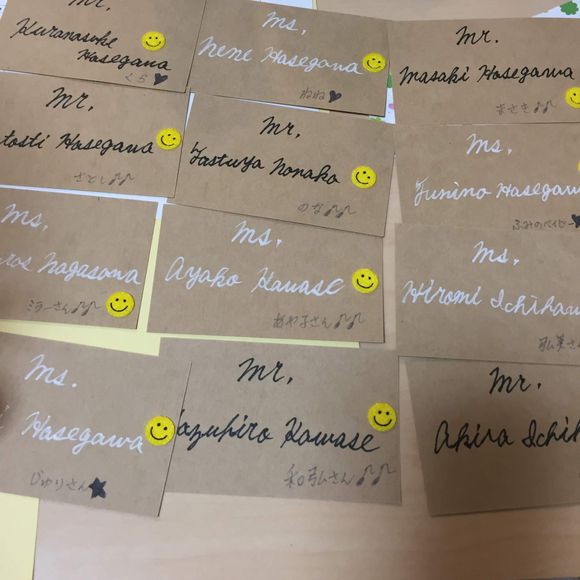 Mr.
Kuranosuke
Hasegawa
くら♥
Ms.
Nene Hasegawa
ねね♥
Mr.
Masaki Hasegawa
まさき♪♪
Mr.
tosti Hasegawa
さとし♪♪
Mr.
Tastuya Nonaka
のな♪♪
Ms.
Fumino Hasegaw
ふみのベイビー♥
Ms.
ros Nagasana
ミラーさん♪♪
Ms.
Ayako Kawase
あや子さん♪♪
Ms.
Hiromi Ichikaw
弘美さん
Ms.
i Hasegawa
じゅりさん★
Mr.
azuhiro Kawase
和弘さん♪♪
Mr.
Akira Ichi